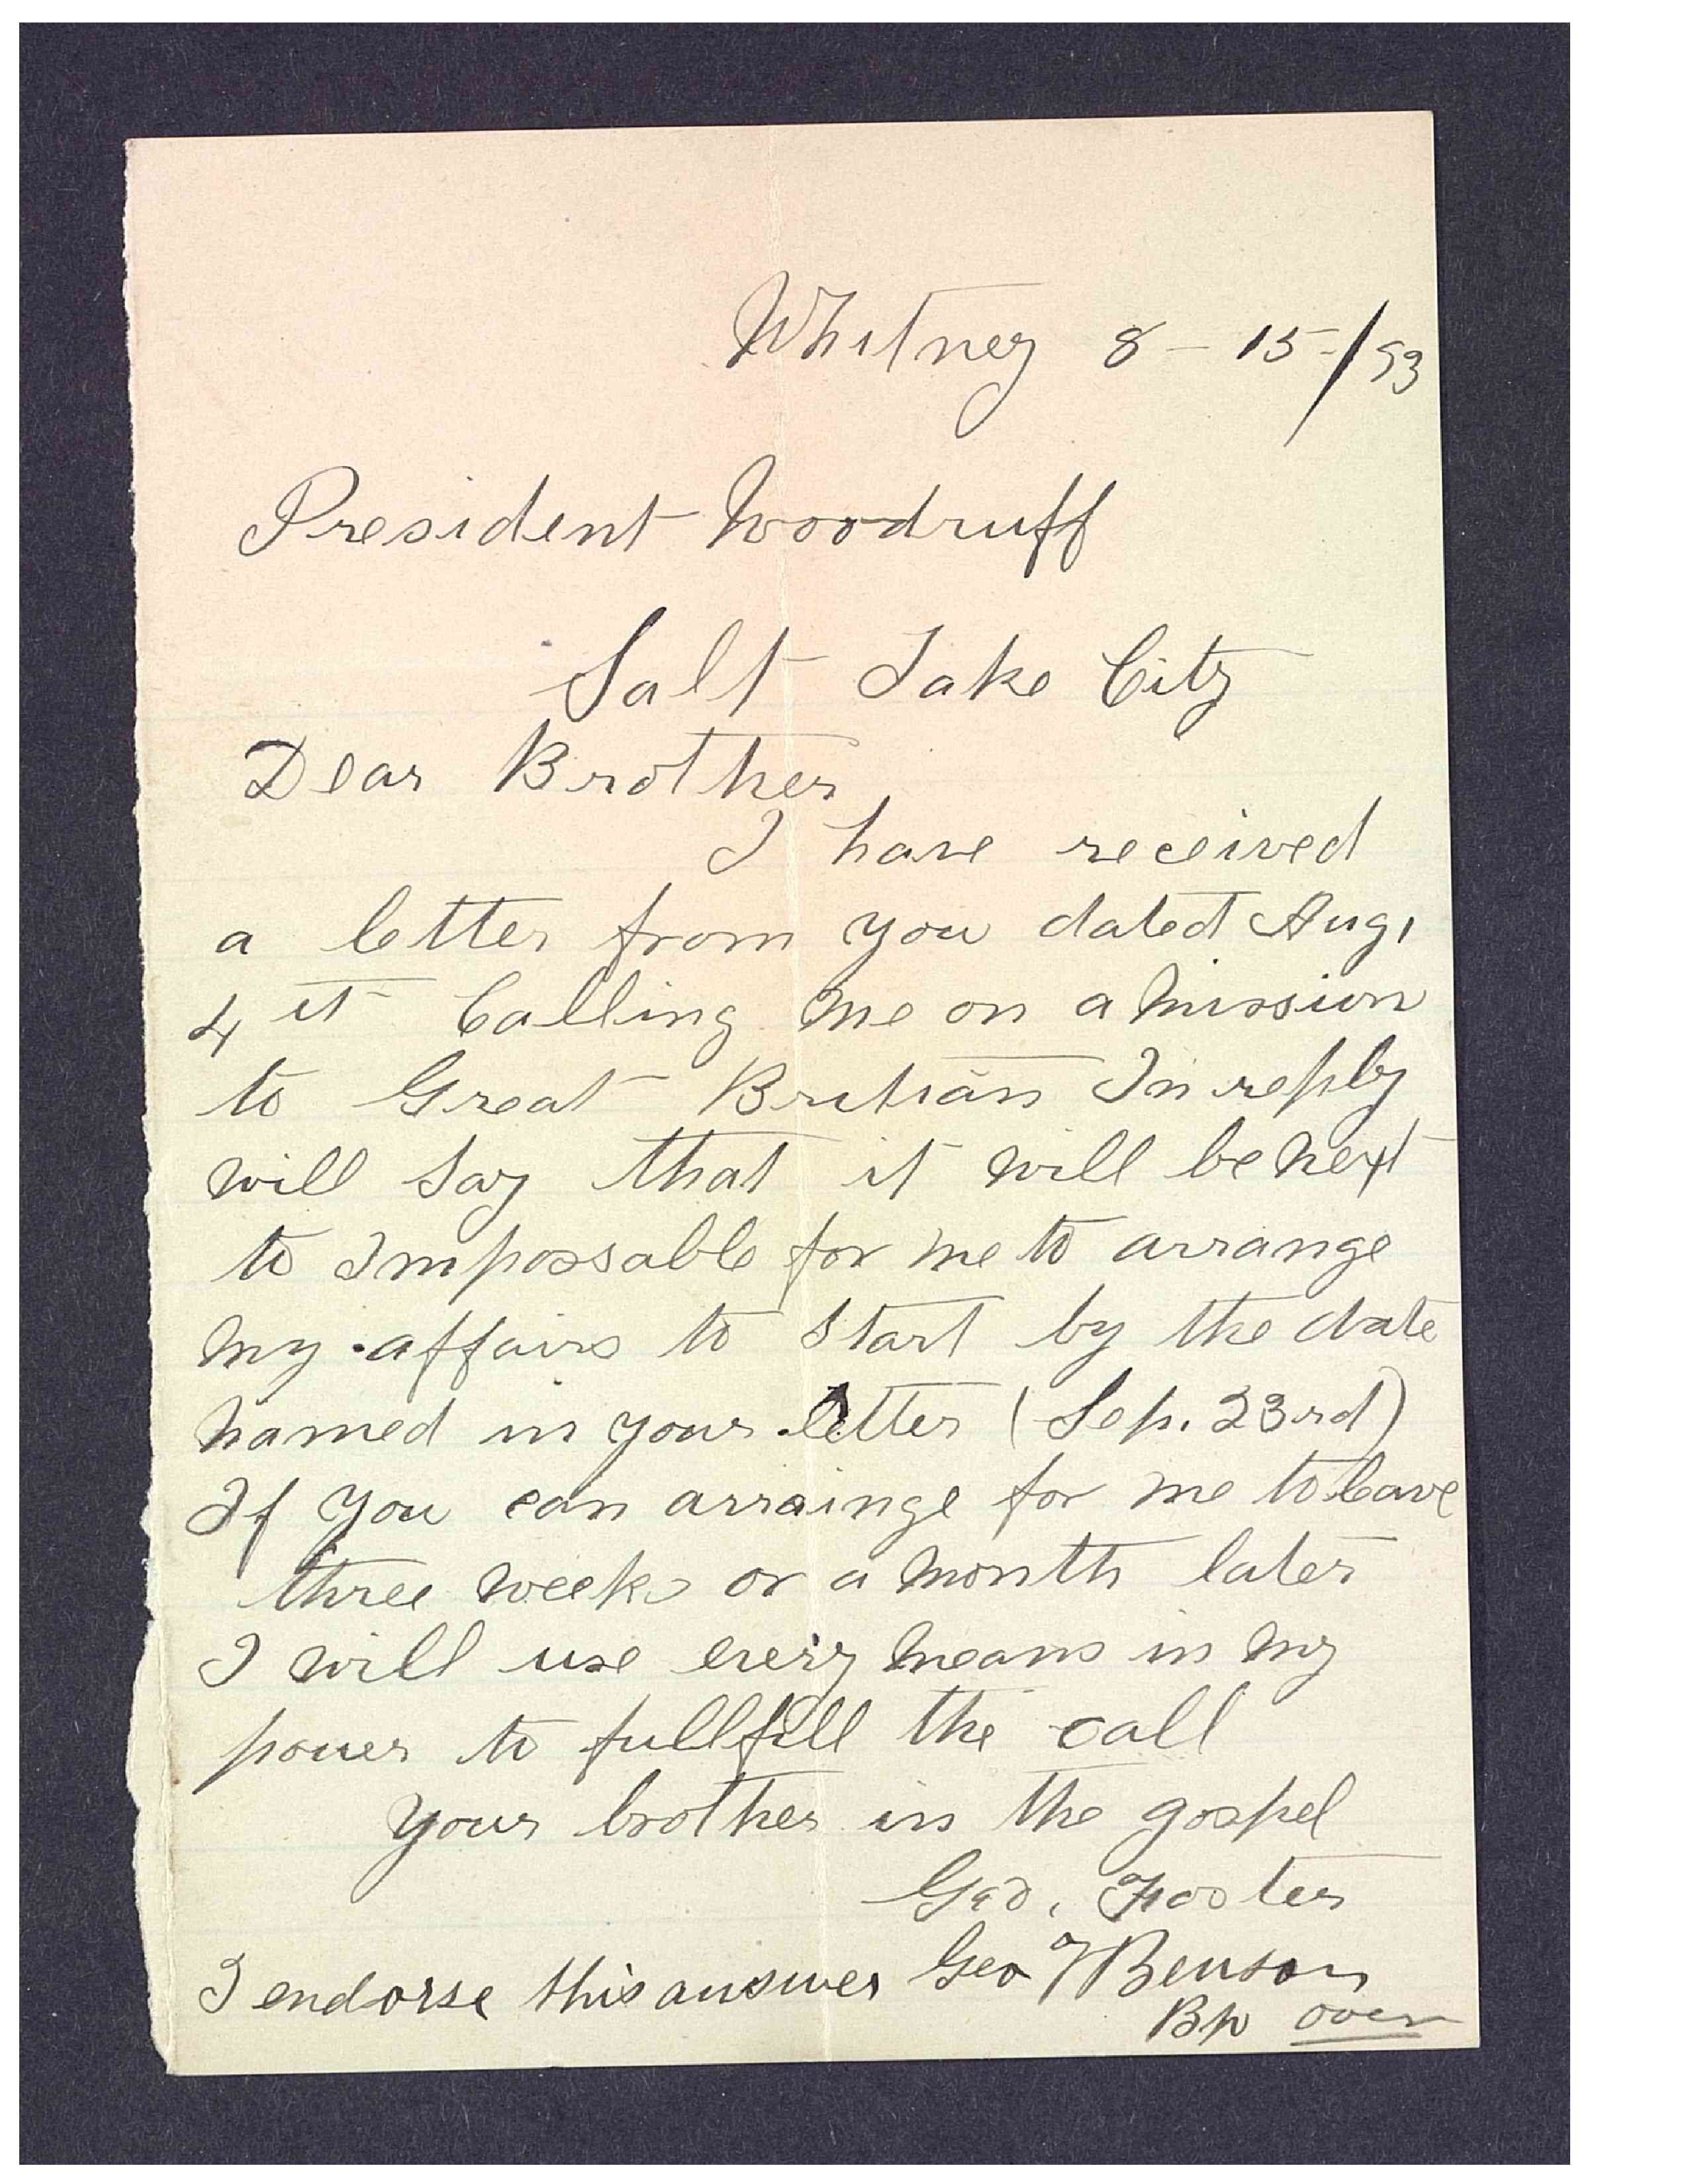 Whitney 8 - 15-/93
President Woodruff
Salt Lake City
Dear Brother
I have received
a letter from you dated Aug,
4th Calling me on a mission
to Great Britian In reply
will say that it will be next
to Impossable for me to arrange
my affairs to start by the date
named in your letter (Sep. 23rd)
If you can arrainge for me to leave
three weeks or a month later
I will use every means in my
power to fullfill the call
Your brother in the gospel
Geo, Foster
I endorse this answer Geo T Benson
Bp over